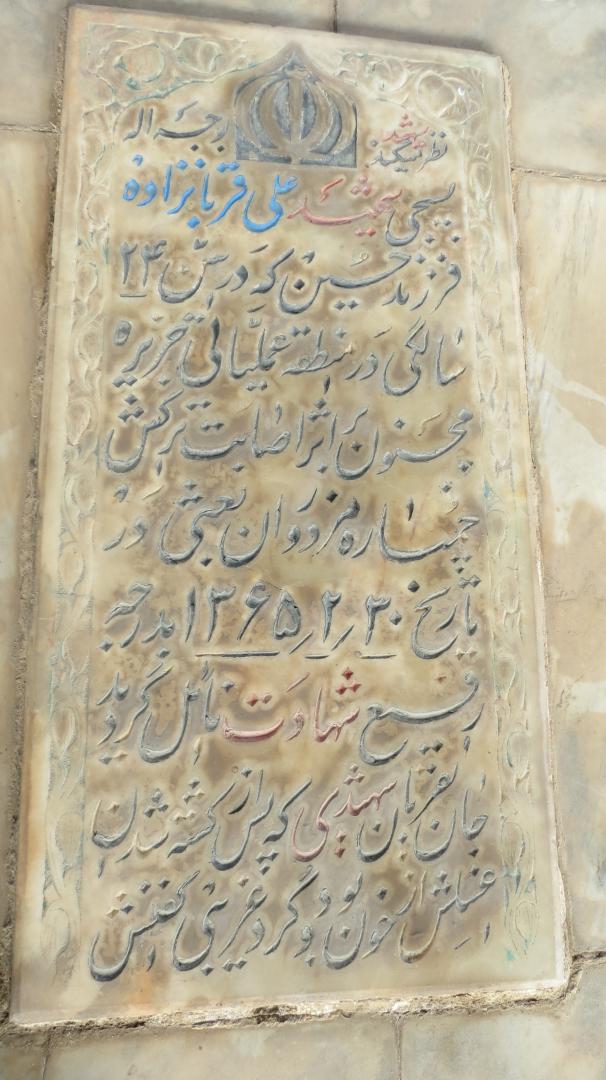 شهید نظر میکند بوجه اله
بسیجی شهید علی قربانزاده
فرزند حسین که در سن ۲۴
سالگی در منطقه عملیاتی جزیره
مجنون بر اثر اصابت ترکش
خمپاره مزدوران بعثی در
تاریخ ۱۳۶۵٫۲٫۳۰ بدرجه
رفیع شهادت نائل گردید
جان بقربان شهیدی که پس از کشته شدن
غسلش از خون بود و گرد غریبی کفنش